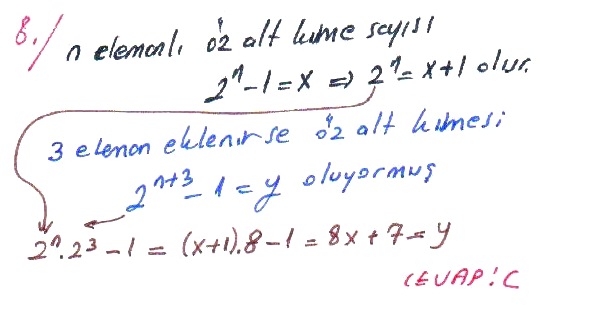 8./ n elemanlı öz alt küme sayısı
2ⁿ-1=x ⇒ 2ⁿ=x+1 olur.
3 eleman eklenirse öz alt kümesi
2ⁿ⁺³-1=y oluyormuş
2ⁿ.2³-1=(x+1).8-1=8x+7=y
CEVAP:C